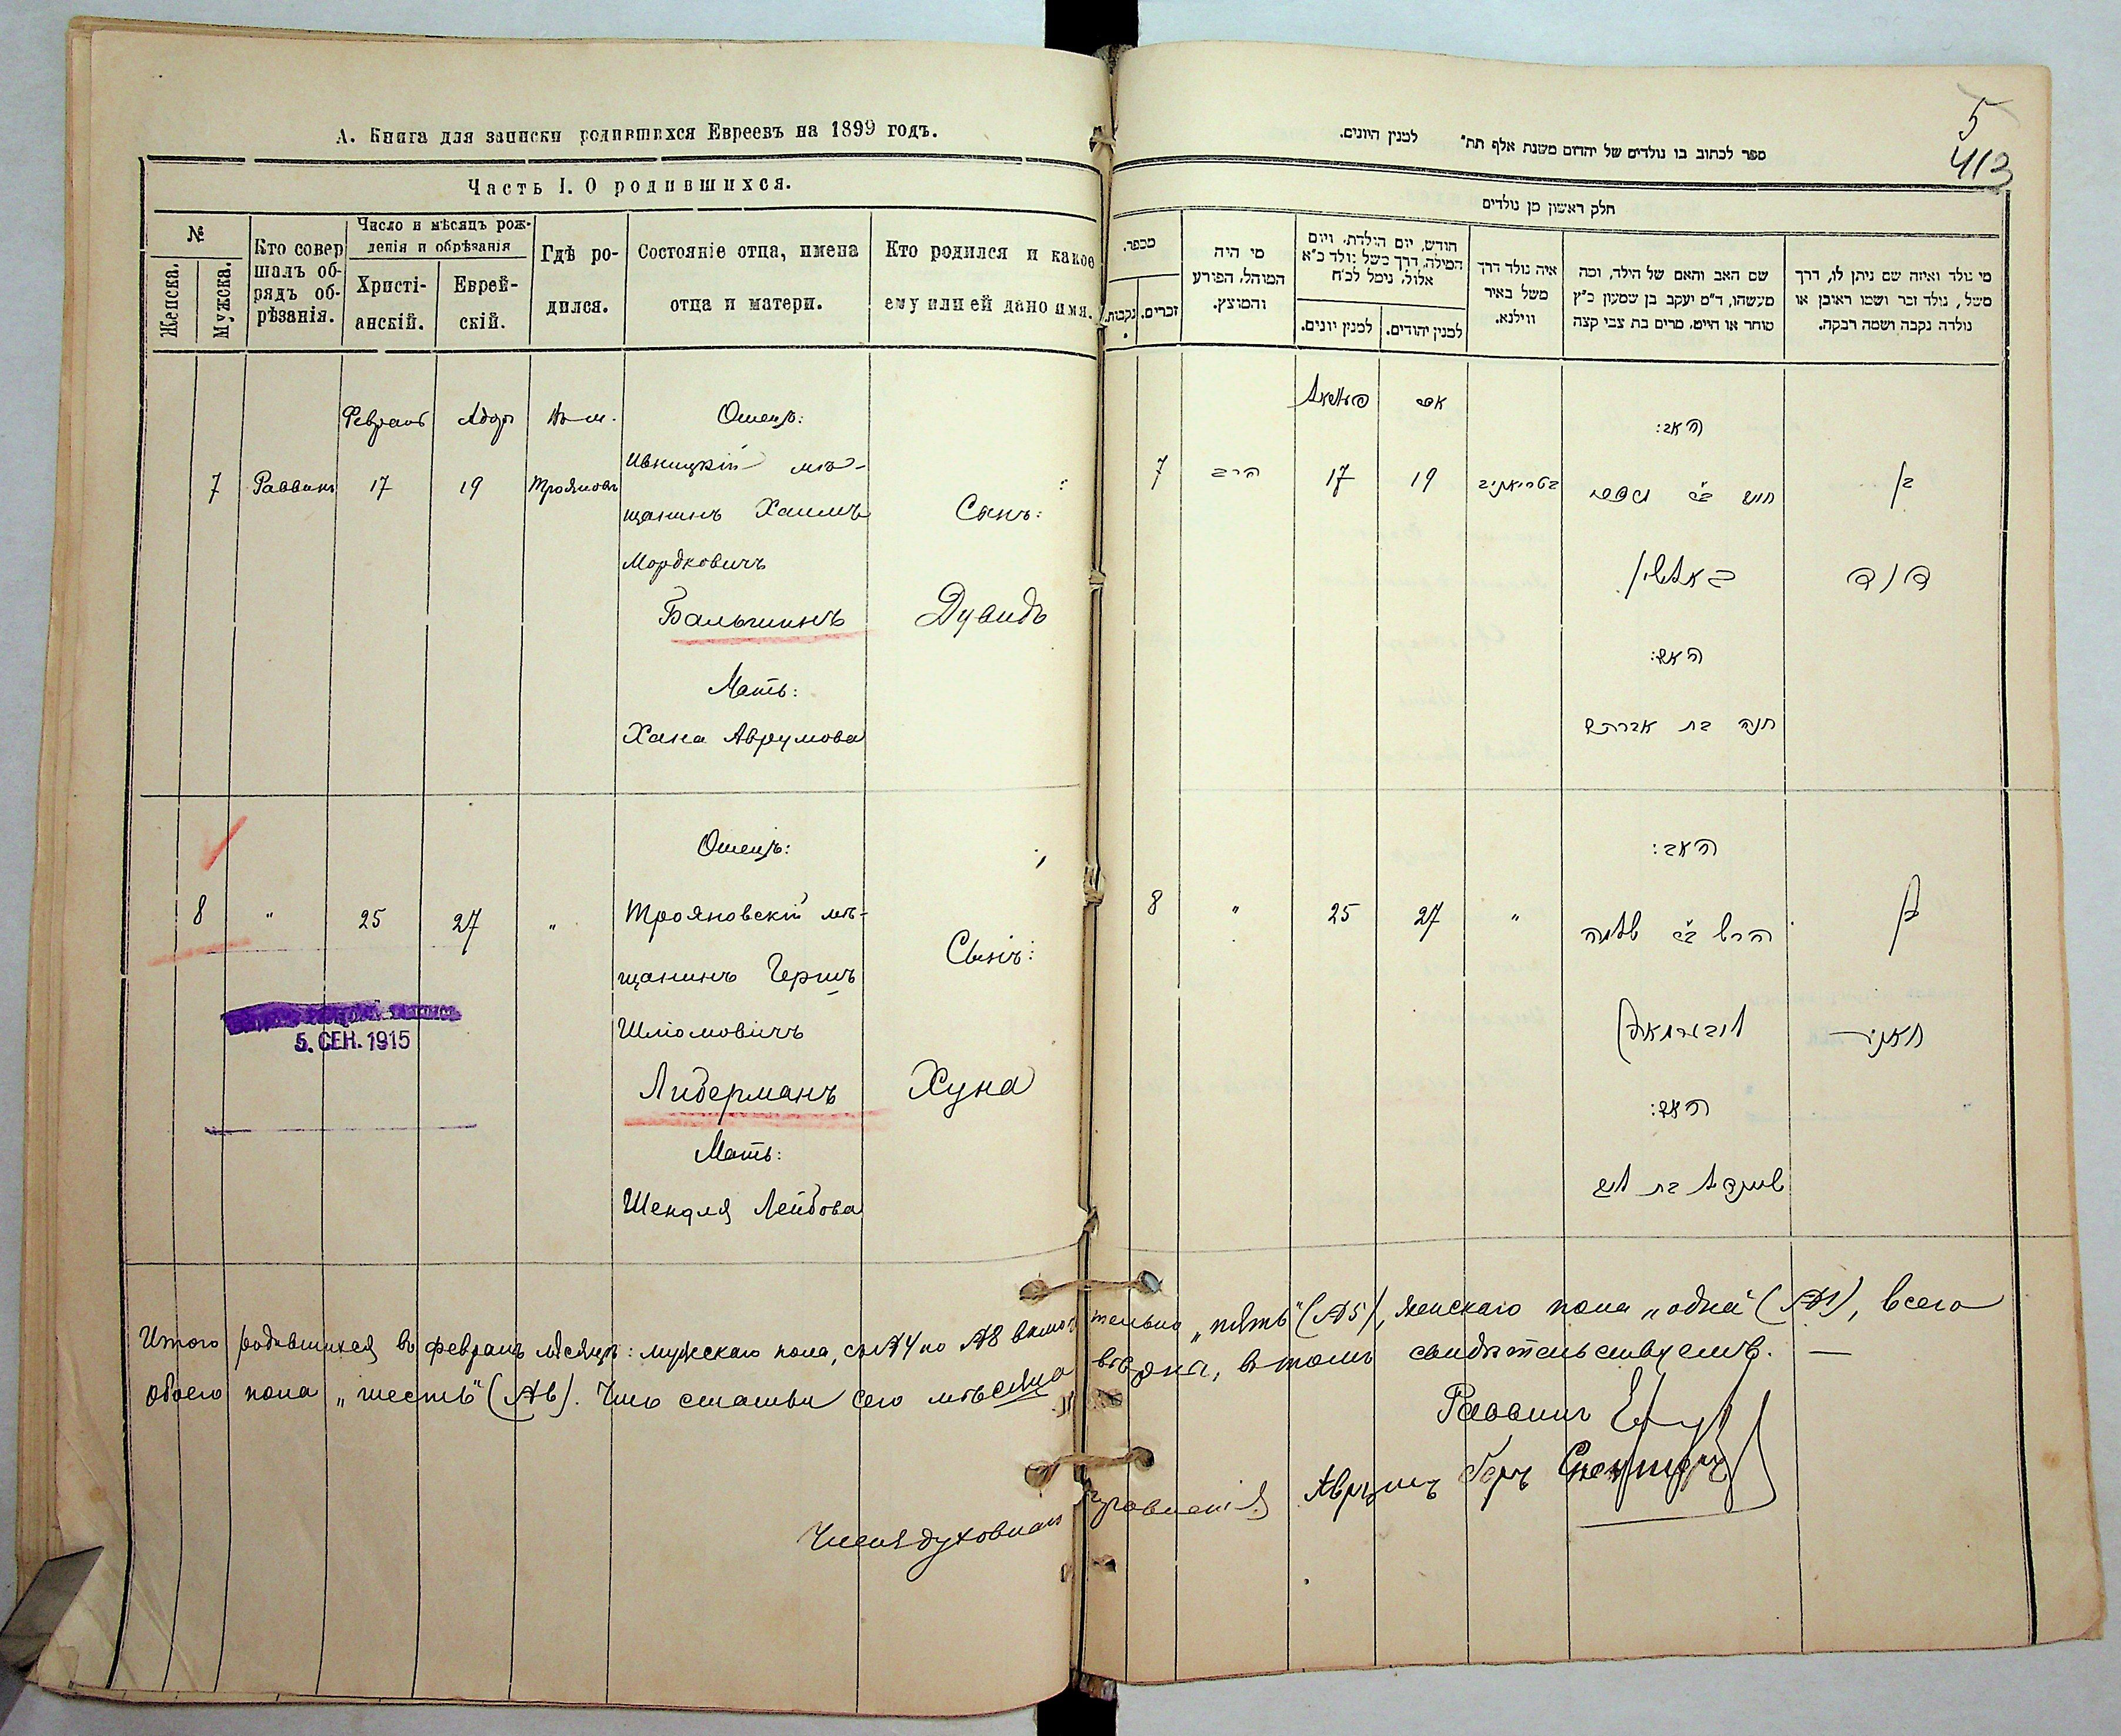 А. Книга для записки родившихся Евреевъ на 1899 годъ.
Часть I. О родившихся.
№
Женска.
Мужска.
Кто совер
шалъ об-
рядъ об-
рѣзанія.
Число и мѣсяцъ рож-
денія и обрѣзанія
Христі-
анскій.
Еврей-
скій.
Гдѣ ро-
дился.
Состояніе отца, имена
отца и матери.
Кто родился и какое
ему или ей дано имя.
Февраль Адоръ Въ м. Отецъ:
7 Раввинъ 17 19 Трояновъ
Ивницкій мѣ-
щанинъ Хаимъ
Мордковичъ
Бальшинъ
Мать:
Хана Аврумова
Сынъ:
Дувидъ
Отецъ:
8 " 25 27 "
Трояновскій мѣ-
щанинъ Гершъ
Шліомовичъ
Либерманъ
Мать:
Шендля Лейбова
Сынъ:
Хуна
5. СЕН. 1915
5
413
ספר לכתוב בו נולדים של יהדום משנת אלף תת" למנין היונים.
חלק ראשון מן נולדים
מספר.
נקבות.
זכרים.
מי היה
המוהל, הפורע
והמוצץ.
חודש, יום הולדת, ויום
המילה, דרך משל נולד כ"א
אלול, נימל לכ"ח
למנין יונים.
למנין יהודים.
איה נולד דרך
משל באיר
ווילנא.
שם האב והאם של הילד, ומה
מעשהו, ד"מ יעקב בן שמעון כ"ץ
סוחר או חייט, מרים בת צבי קצה
מי נולד ואיזה שם ניתן לו, דרך
משל, נולד זכר ושמו ראובן או
נולדה נקבה ושמה רבקה.
7 הרב 17 19
האב:
בן
דוד
האם:
חנה בת אברהם
8 " 25 27 "
האב:
הרש ב"ר שלמה
ליבערמאן
האם:
שיינדל בת ליב
בן
חונא
Итого родившихся въ февралѣ мѣсяцѣ: мужскаго пола, съ №4 по №8 включительно „пять" (№5), женскаго пола „одна" (№1), всего
обоего пола „шесть" (№6). Что статьи сего мѣсяца вѣрны, въ томъ свидѣтельствуемъ. —
Раввинъ
Членъ духовнаго правленія Аврумъ Беръ